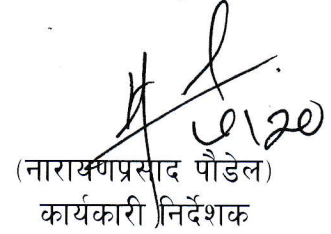 ७।२०
(नारायणप्रसाद पौडेल)
कार्यकारी निर्देशक